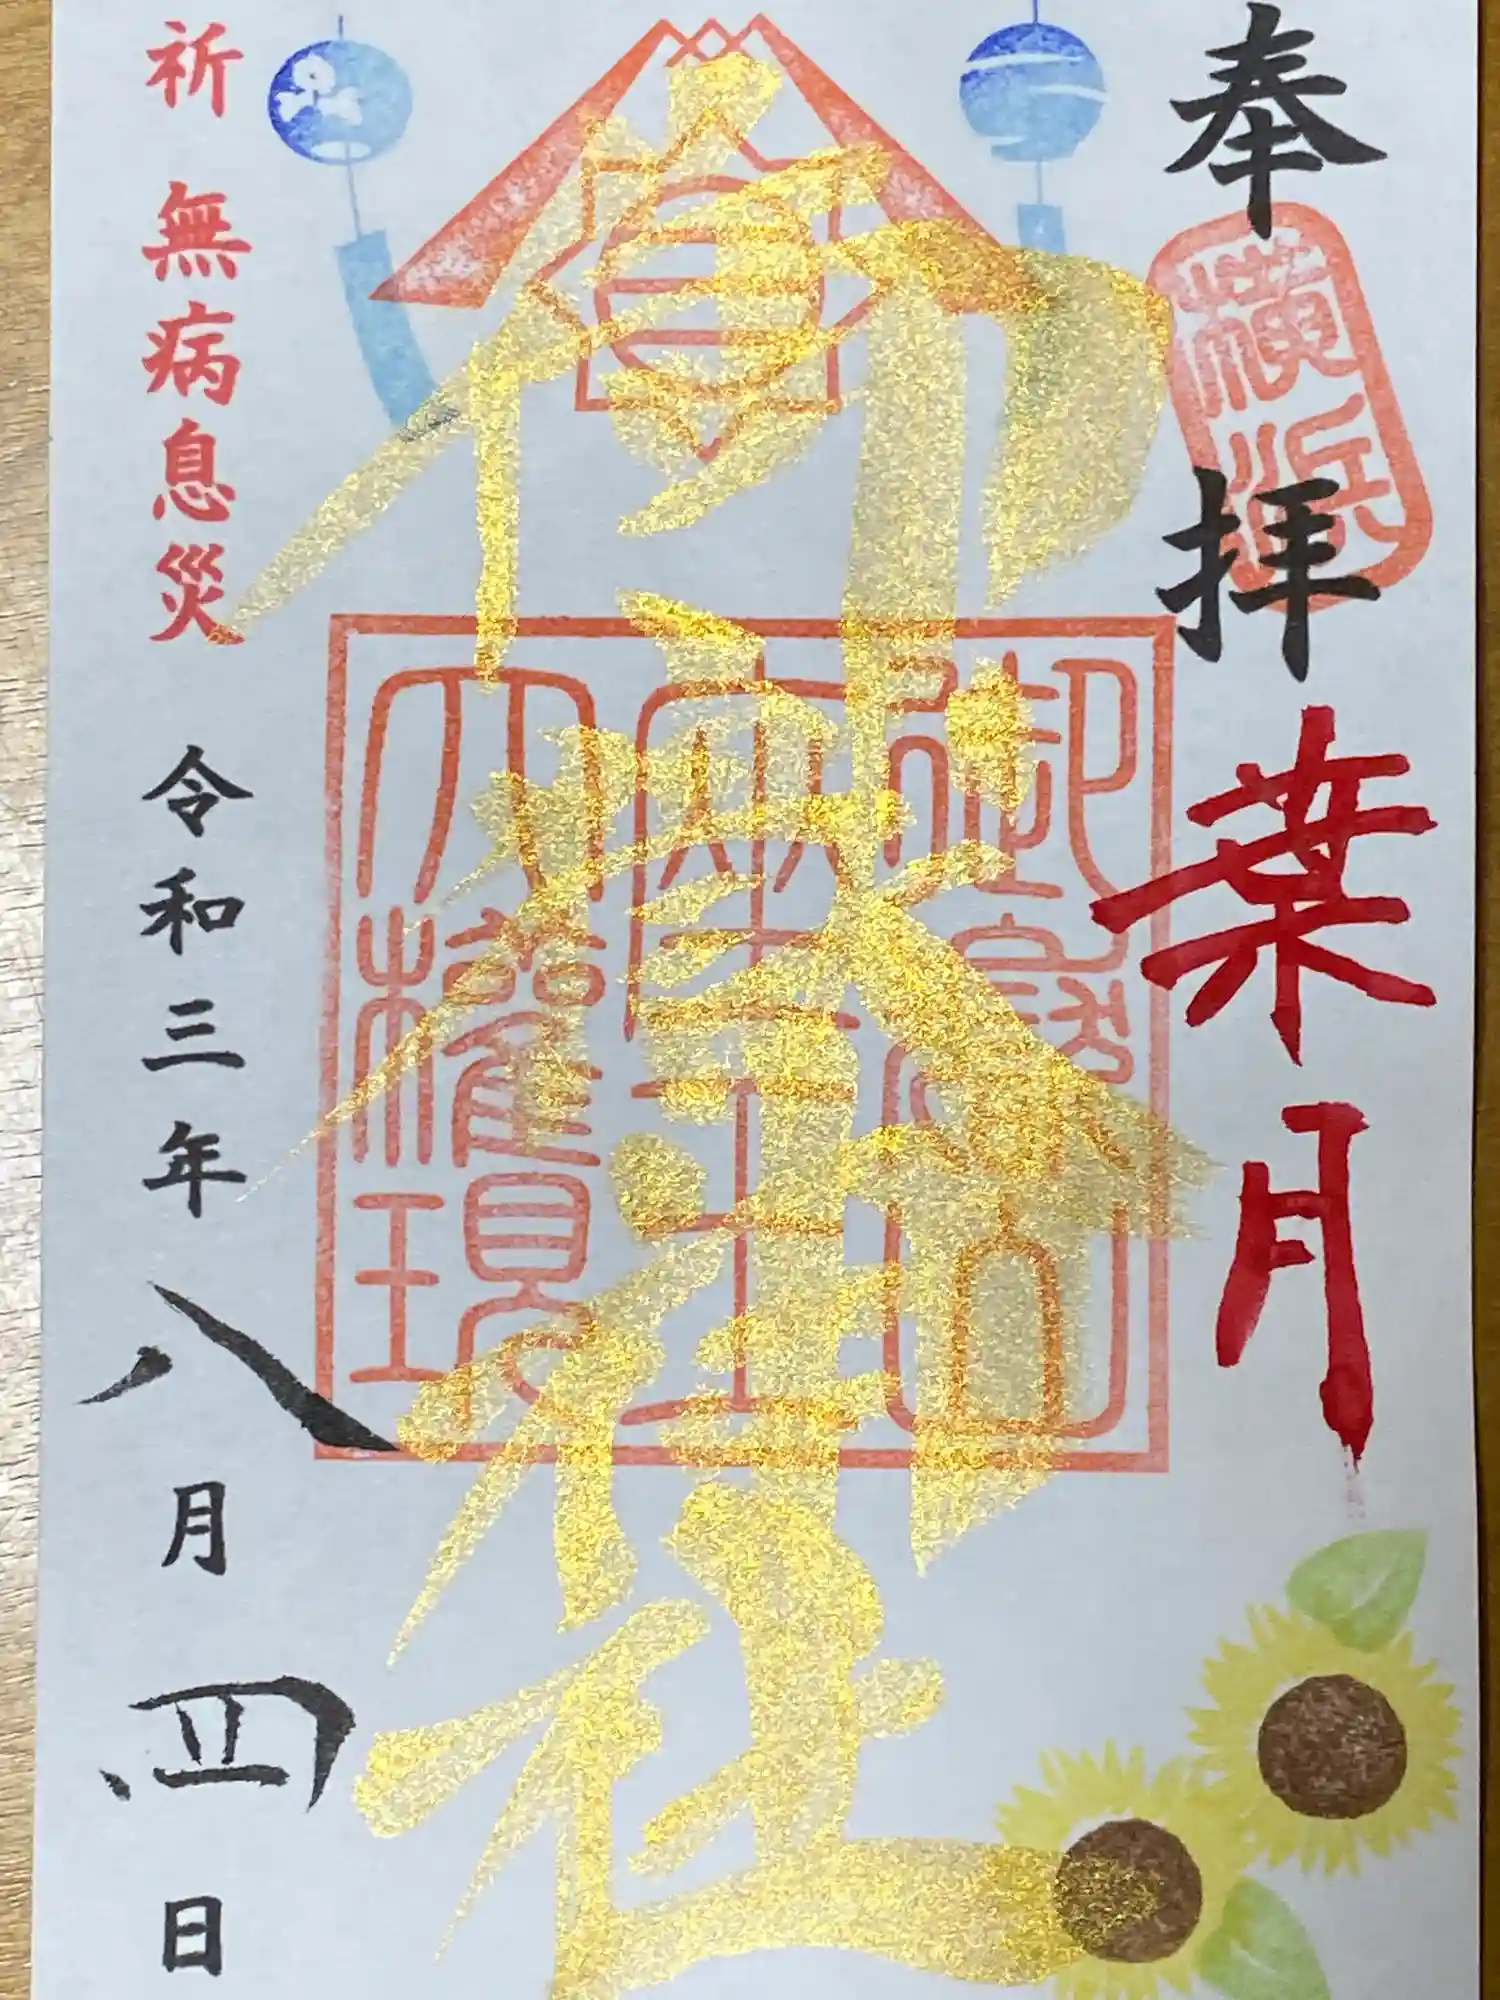 奉拝
横浜
葉月
御嶽神社
御嶽山
座王
大権現
祈 無病息災
令和三年八月四日